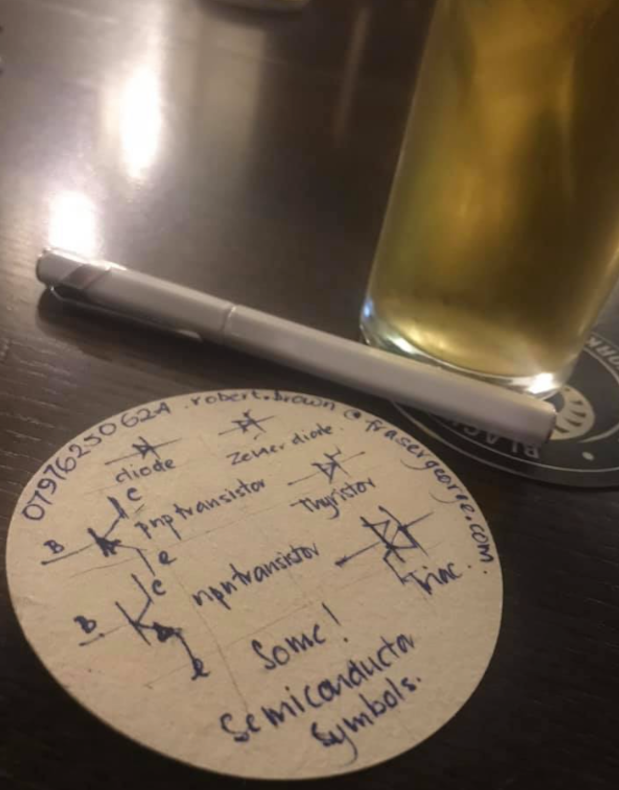 07976250624 . robert.brown @ frasergeorge.com.
diode
Zener diode.
c
B
pnp transistor
e
Thyristor
c
B
npn transistor
e
Triac.
Some!
Semiconductor
Symbols.
BLAC
ORK